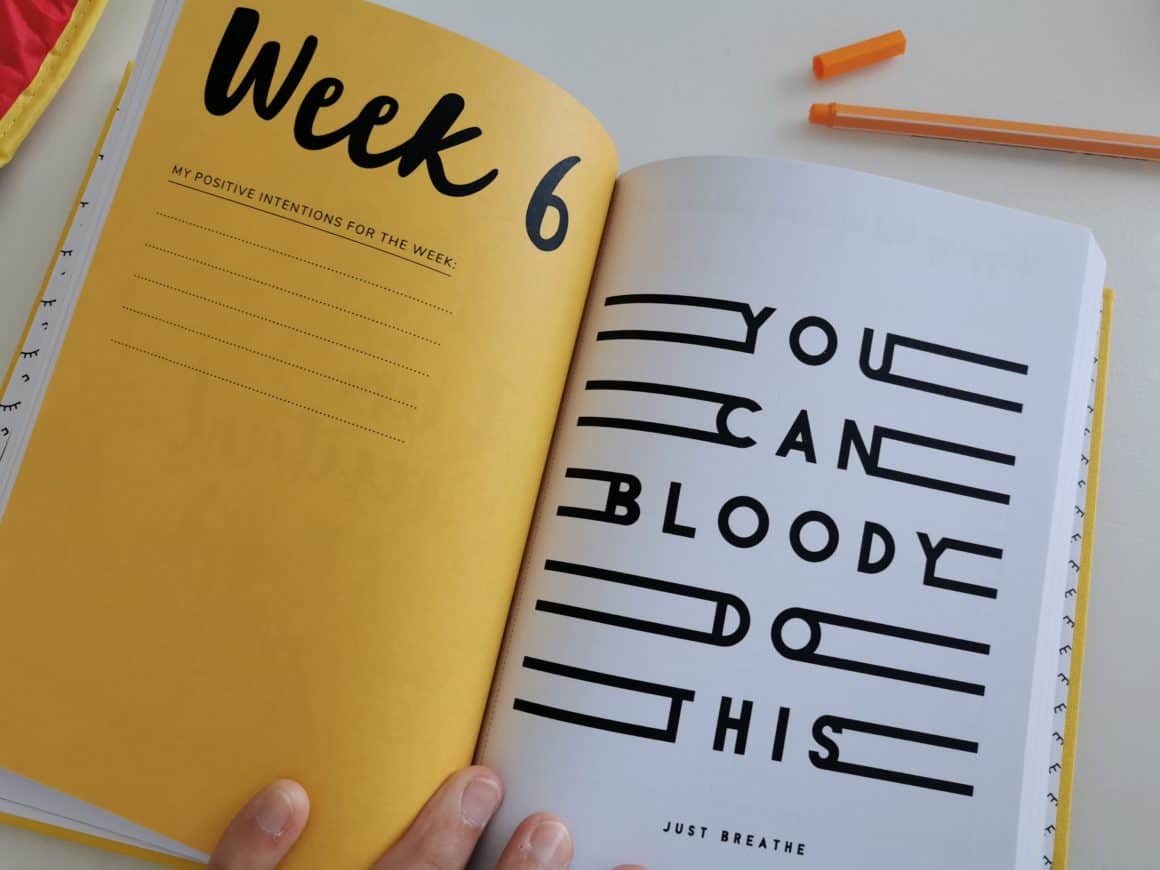 Week 6
MY POSITIVE INTENTIONS FOR THE WEEK:
YOU
CAN
BLOODY
DO
THIS
JUST BREATHE